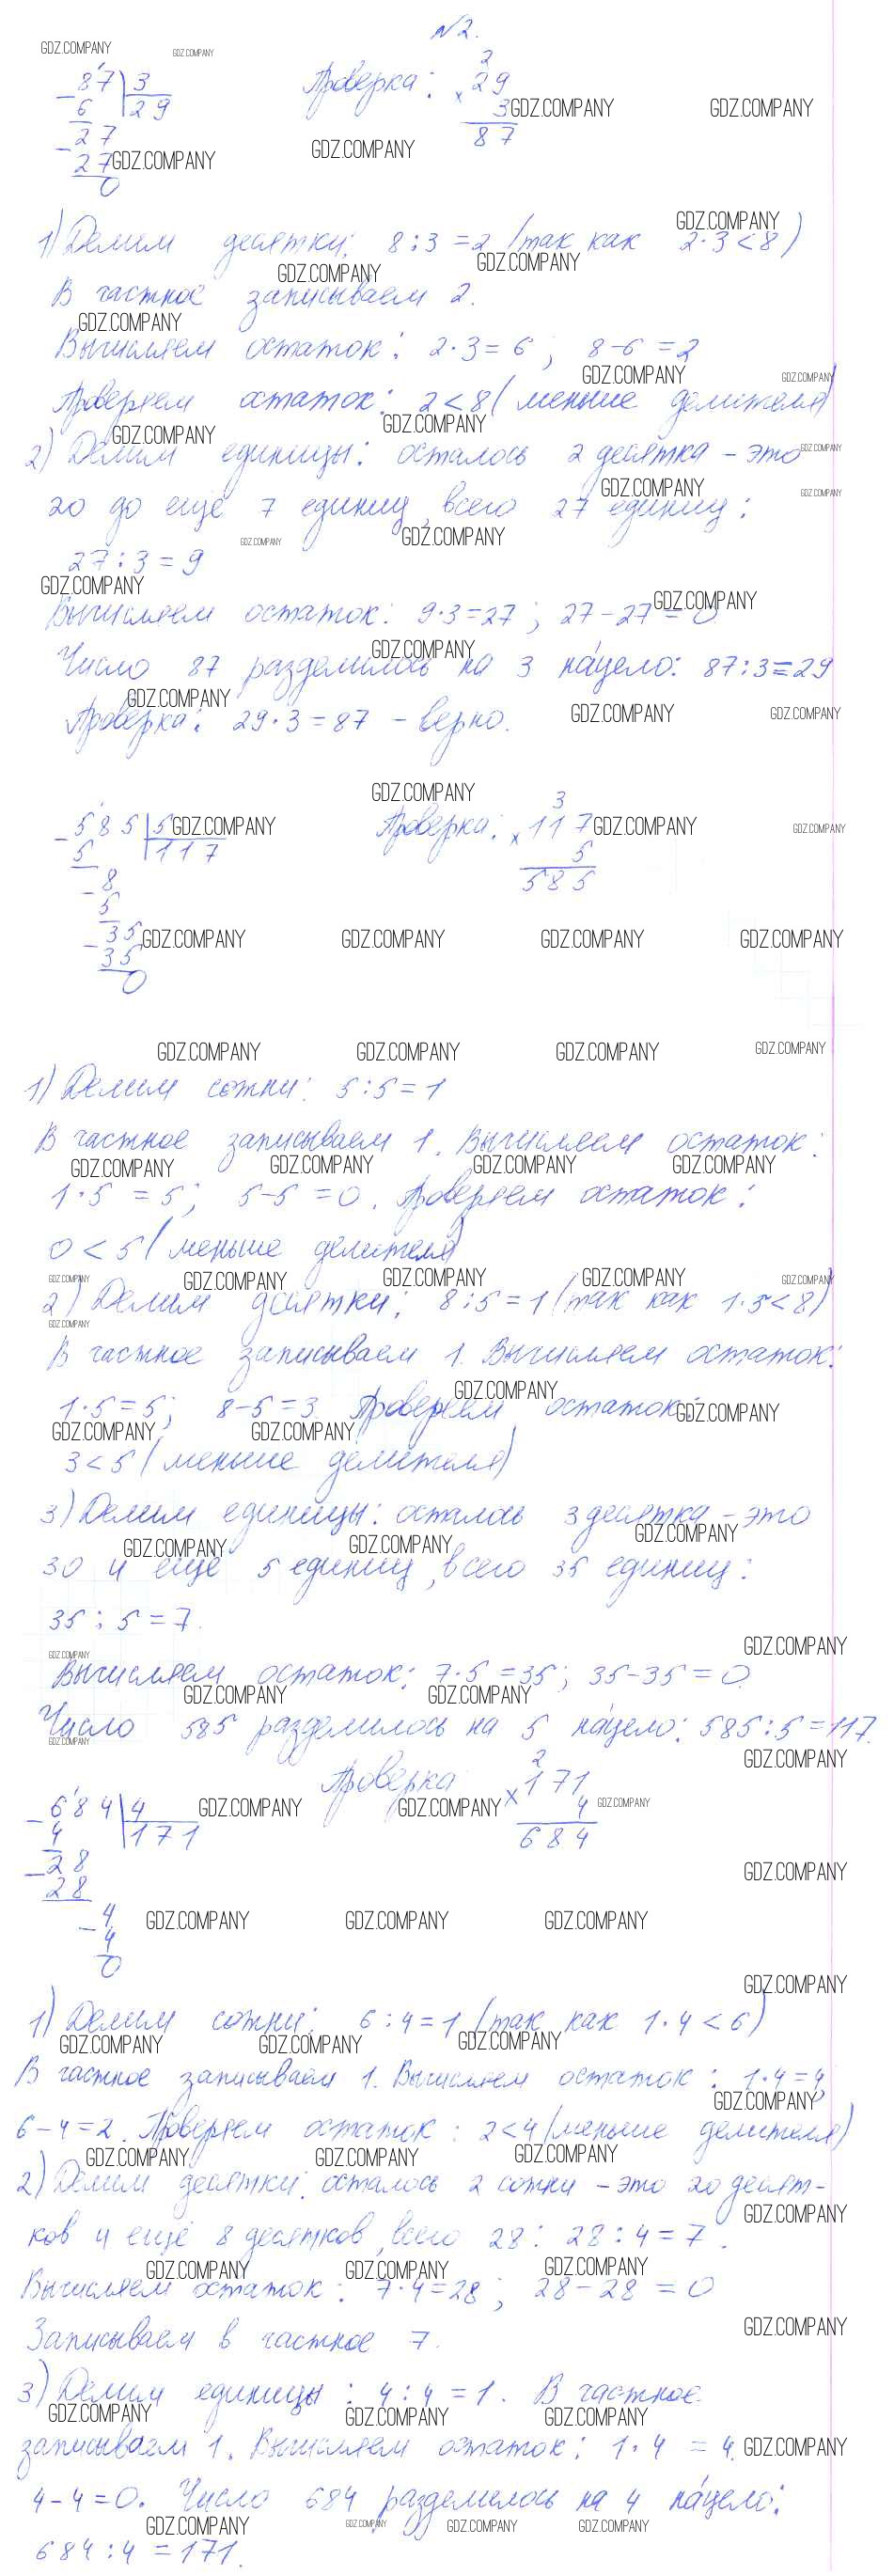 №2.
GDZ.COMPANY GDZ.COMPANY
87 | 3 Проверка: 2
6 | 29 × 29
27 3 GDZ.COMPANY GDZ.COMPANY
27 GDZ.COMPANY GDZ.COMPANY 87
0
GDZ.COMPANY
1) Делим десятки: 8:3=2 (так как 2·3<8)
GDZ.COMPANY GDZ.COMPANY
В частное записываем 2.
GDZ.COMPANY
Вычисляем остаток: 2·3=6; 8-6=2
GDZ.COMPANY GDZ.COMPANY
Проверяем остаток: 2<8 (меньше делителя)
GDZ.COMPANY GDZ.COMPANY
2) Делим единицы: осталось 2 десятка - это GDZ.COMPANY
GDZ.COMPANY GDZ.COMPANY
20 до ещё 7 единиц, всего 27 единиц:
GDZ.COMPANY GDZ.COMPANY
27:3=9
GDZ.COMPANY GDZ.COMPANY
Вычисляем остаток: 9·3=27; 27-27=0
GDZ.COMPANY
Число 87 разделилось на 3 на́цело: 87:3=29
GDZ.COMPANY GDZ.COMPANY GDZ.COMPANY
Проверка: 29·3=87 - верно.
GDZ.COMPANY
585 | 5 GDZ.COMPANY Проверка: 3
5 | 117 × 117 GDZ.COMPANY GDZ.COMPANY
8 5
5 585
35 GDZ.COMPANY GDZ.COMPANY GDZ.COMPANY GDZ.COMPANY
35
0
GDZ.COMPANY GDZ.COMPANY GDZ.COMPANY GDZ.COMPANY
1) Делим сотни: 5:5=1
В частное записываем 1. Вычисляем остаток:
GDZ.COMPANY GDZ.COMPANY GDZ.COMPANY GDZ.COMPANY
1·5=5; 5-5=0. Проверяем остаток:
0<5 (меньше делителя)
GDZ.COMPANY GDZ.COMPANY GDZ.COMPANY GDZ.COMPANY GDZ.COMPANY
2) Делим десятки: 8:5=1 (так как 1·5<8)
GDZ.COMPANY
В частное записываем 1. Вычисляем остаток:
GDZ.COMPANY
1·5=5; 8-5=3. Проверяем остаток: GDZ.COMPANY
GDZ.COMPANY GDZ.COMPANY
3<5 (меньше делителя)
3) Делим единицы: осталось 3 десятка - это
GDZ.COMPANY GDZ.COMPANY GDZ.COMPANY
30 и ещё 5 единиц, всего 35 единиц:
35:5=7.
GDZ.COMPANY GDZ.COMPANY
Вычисляем остаток: 7·5=35; 35-35=0
GDZ.COMPANY GDZ.COMPANY
Число 585 разделилось на 5 на́цело: 585:5=117.
GDZ.COMPANY GDZ.COMPANY
684 | 4 GDZ.COMPANY Проверка 2
4 | 171 GDZ.COMPANY × 171
28 4 GDZ.COMPANY
28 684 GDZ.COMPANY
4 GDZ.COMPANY GDZ.COMPANY GDZ.COMPANY
4
0
GDZ.COMPANY
1) Делим сотни: 6:4=1 (так как 1·4<6)
GDZ.COMPANY GDZ.COMPANY GDZ.COMPANY
В частное записываем 1. Вычисляем остаток: 1·4=4,
GDZ.COMPANY
6-4=2. Проверяем остаток: 2<4 (меньше делителя)
GDZ.COMPANY GDZ.COMPANY GDZ.COMPANY
2) Делим десятки: осталось 2 сотни - это 20 десят-
GDZ.COMPANY
ков и ещё 8 десятков, всего 28: 28:4=7.
GDZ.COMPANY GDZ.COMPANY GDZ.COMPANY
Вычисляем остаток: 7·4=28; 28-28=0
GDZ.COMPANY
Записываем в частное 7.
3) Делим единицы: 4:4=1. В частное
GDZ.COMPANY GDZ.COMPANY GDZ.COMPANY
записываем 1. Вычисляем остаток: 1·4=4. GDZ.COMPANY
4-4=0. Число 684 разделилось на 4 на́цело:
GDZ.COMPANY GDZ.COMPANY GDZ.COMPANY GDZ.COMPANY
684:4=171.